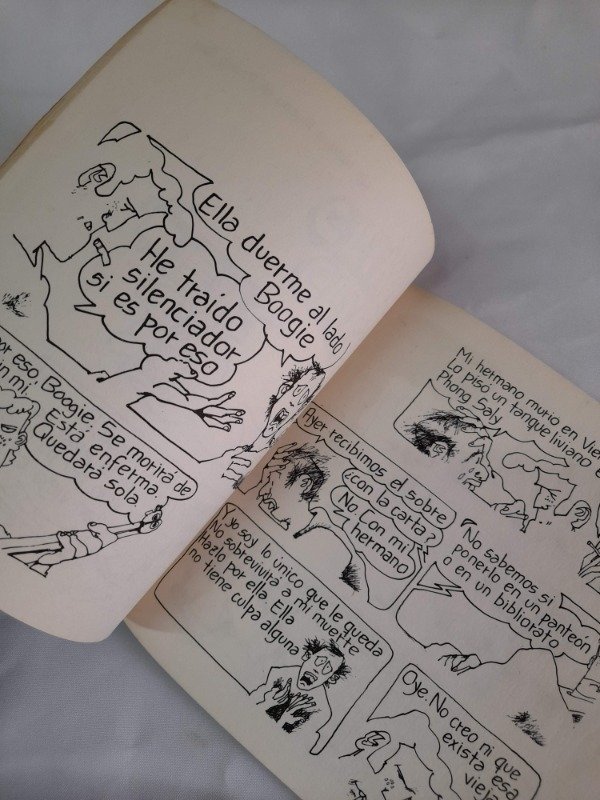 Ella duerme al lado
Boogie
He traído
silenciador
si es por eso
por eso, Boogie. Se morirá de
sin mí.
Está enferma
Quedará sola
Mi hermano murió en
Lo pisó un tanque liviano
Phong Saly
Ayer recibimos el sobre
¿con la carta?
No. Con mi
hermano
No sabemos si
ponerlo en un panteón
o en un bibliorato
Yo soy lo único que le queda
No sobrevivirá a mi muerte
Hazlo por ella. Ella
no tiene culpa alguna
Oye. No creo ni que
exista esa